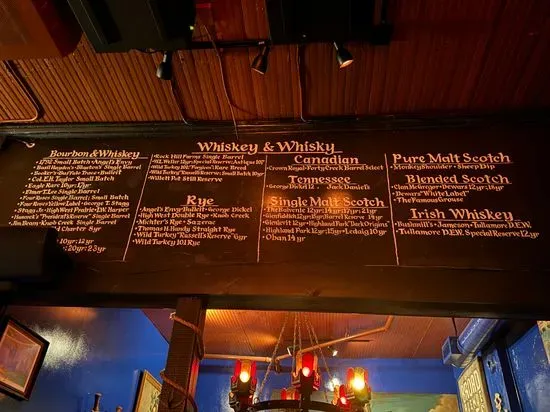 Whiskey & Whisky
Bourbon & Whiskey
• 1792 Small Batch • Angel's Envy
• Basil Hayden's • Blanton's Single Barrel
• Booker's • Buffalo Trace • Bulleit
• Col. E.H. Taylor Small Batch
Eagle Rare 10yr 17yr
• Elmer T. Lee Single Barrel
• Four Roses Single Barrel
• George T. Stagg
Stagg Jr. • High West Prairie • I.W. Harper
Single Barrel
Jim Beam • Knob Creek Single
20yr • 23yr
• Rock Hill Farms Single Barrel
• W.L. Weller 12yr Special Reserve Antique 107
• Wild Turkey Rare Breed
Wild Turkey "Russell's Reserve" Small Batch 10yr
Willett Pot Still Reserve
Rye
• Angel's Envy • Bulleit • George Dickel
• High West Double Rye • Knob Creek
• Michter's Rye • Sazerac
• Thomas H. Handy Straight Rye
• Wild Turkey "Russell's Reserve" 6yr
• Wild Turkey 101 Rye
Canadian
• Crown Royal • Forty Creek Barrel Select
Tennessee
• George Dickel 12 • Jack Daniel's
Single Malt Scotch
• The Balvenie 12yr 14yr 17yr 21yr
• Glenfiddich 12yr
• Glenlivet 12yr • Highland Park "Dark Origins"
• Highland Park
• Oban 14yr
Pure Malt Scotch
• Monkey Shoulder • Sheep Dip
Blended Scotch
• Clan McGregor • Dewars 12yr, 18yr
• Dewars "White Label"
• The Famous Grouse
Irish Whiskey
• Bushmill's • Jameson • Tullamore D.E.W.
• Tullamore D.E.W. Special Reserve 12yr